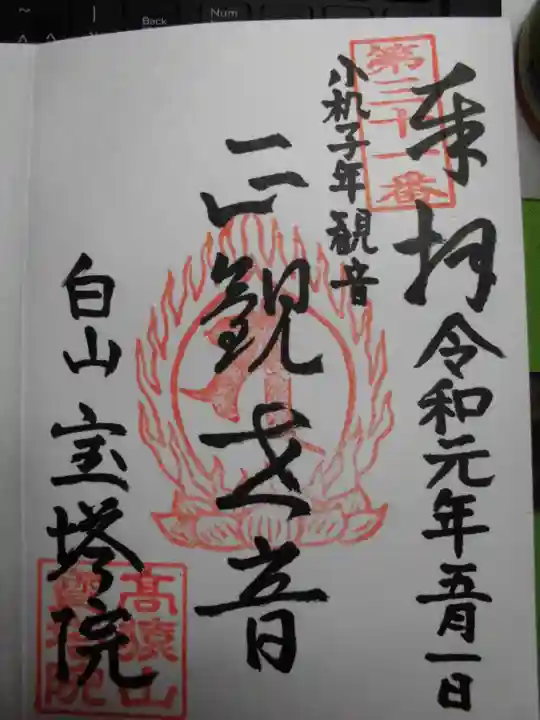 奉拝 令和元年五月一日
第三十一番
小机子年観音
正観世音
白山 宝塔院
高猿山
寳塔院
Back
Num